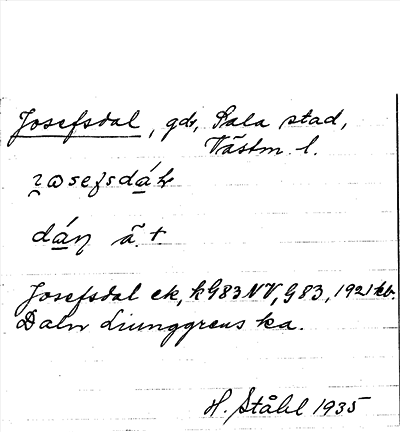 Josefsdal, gdr, Sala stad,
Västm. l.
josefsdáɫ
dáɳ ä. +
Josefsdal ek, kG83NV, G83, 1921 kb.
Daln Liunggrens ka.
H. Ståhl 1935